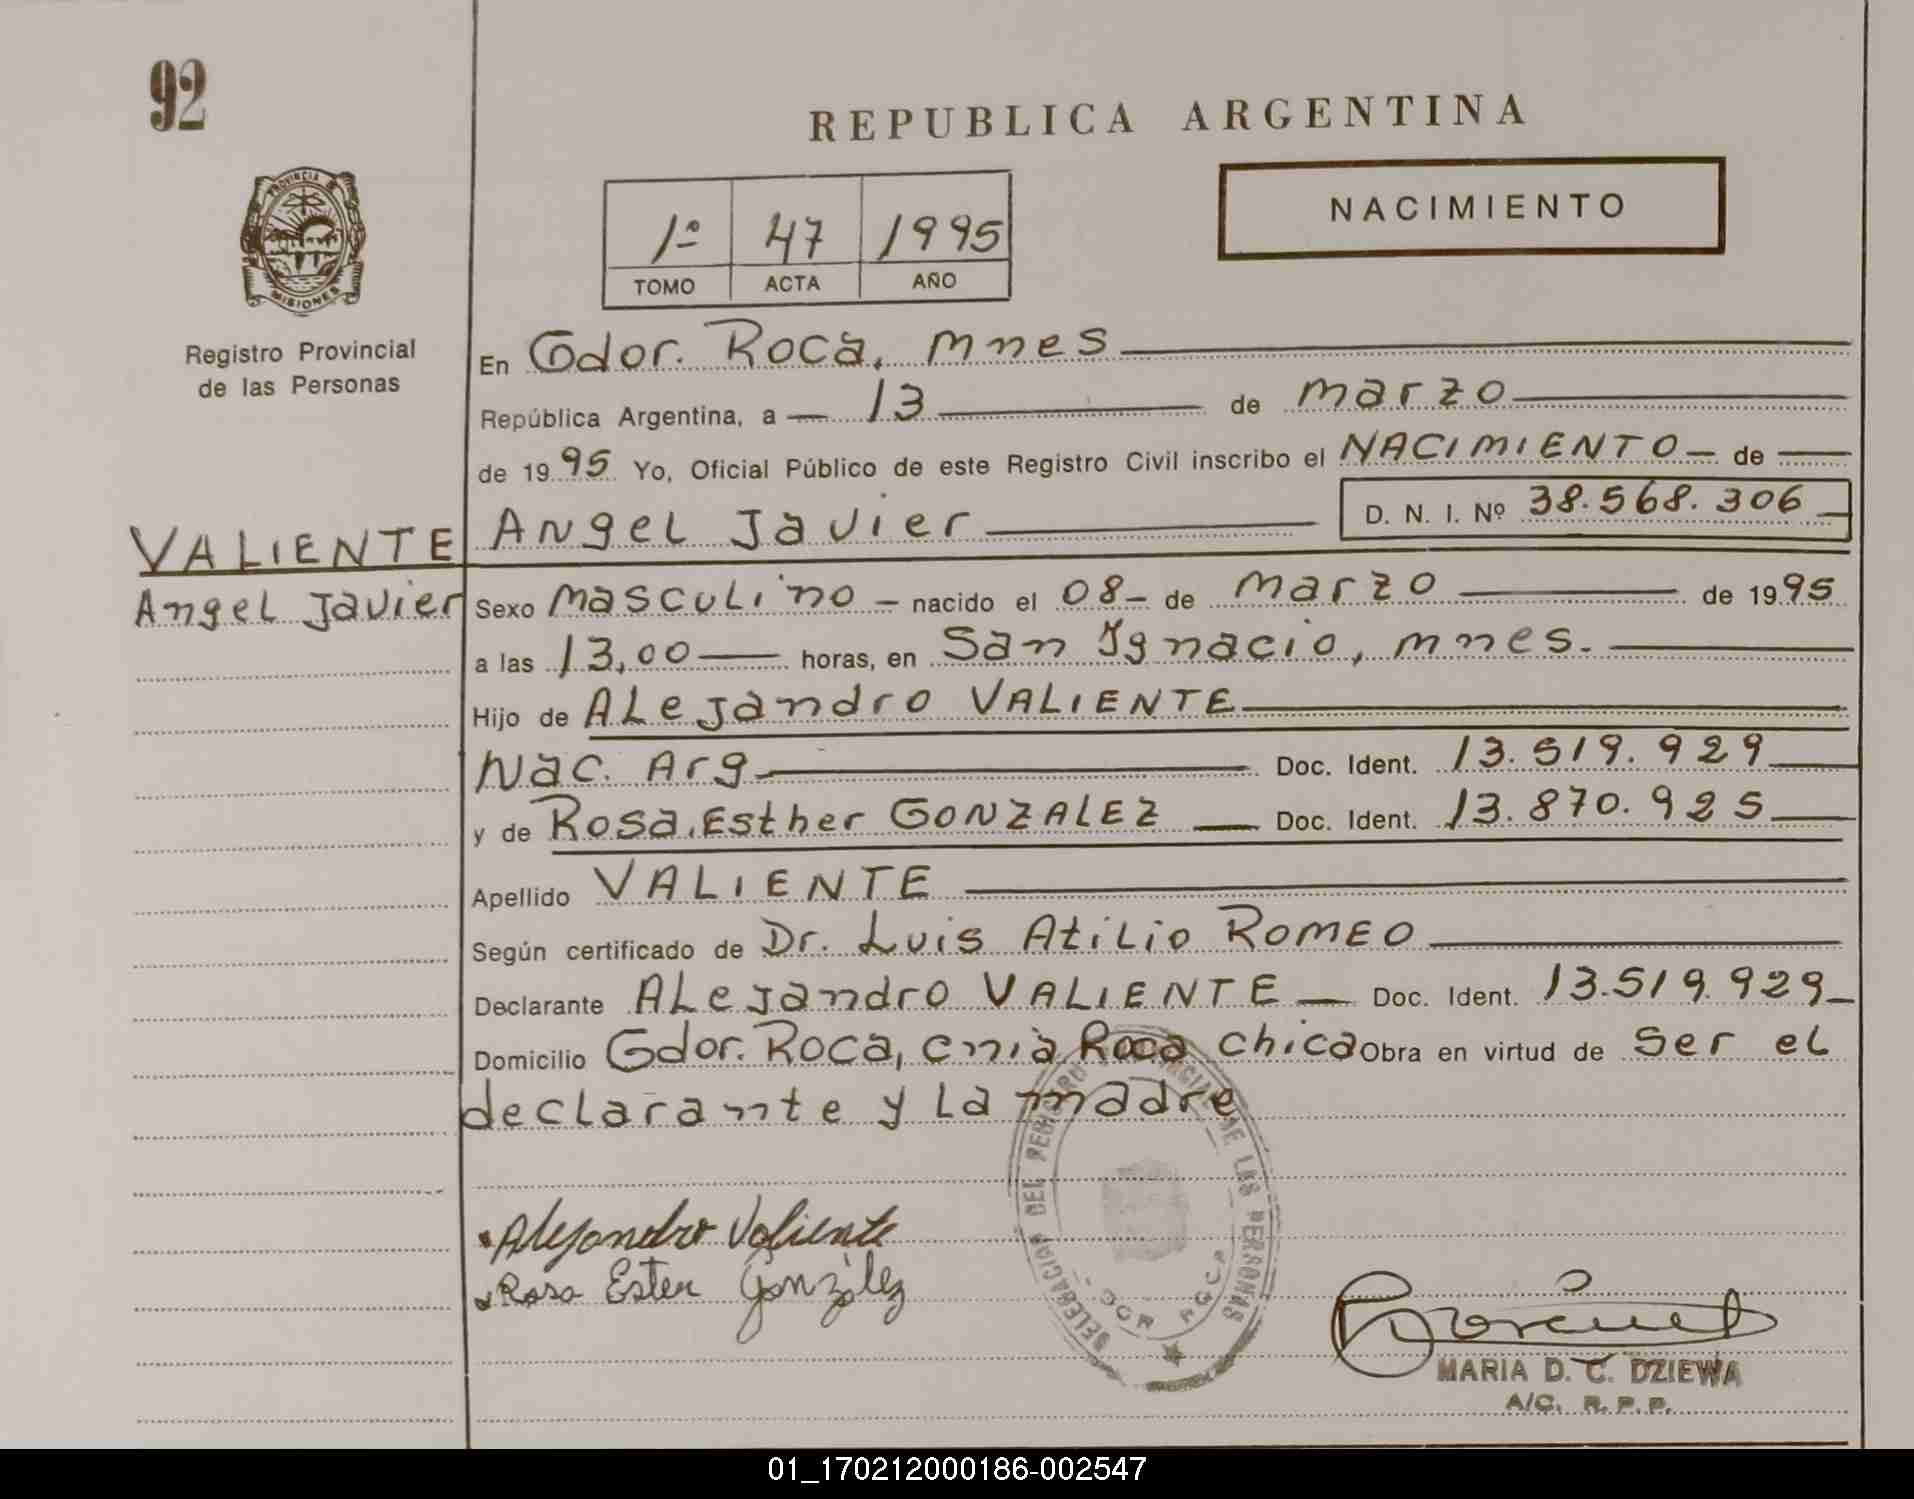 92
REPUBLICA ARGENTINA
NACIMIENTO
1º 47 1995
TOMO ACTA AÑO
PROVINCIA DE
MISIONES
Registro Provincial
de las Personas
En Gdor. Roca, mnes
República Argentina, a 13 de marzo
de 1995 Yo, Oficial Público de este Registro Civil inscribo el NACIMIENTO de
D. N. I. Nº 38.568.306
VALIENTE Angel Javier
Angel Javier
Sexo masculino nacido el 08 de marzo de 1995
a las 13,00 horas, en San Ignacio, mnes.
Hijo de Alejandro VALIENTE
Nac. Arg Doc. Ident. 13.519.929
y de Rosa Esther GONZALEZ Doc. Ident. 13.870.925
Apellido VALIENTE
Según certificado de Dr. Luis Atilio ROMEO
Declarante Alejandro VALIENTE Doc. Ident. 13.519.929
Domicilio Gdor. Roca, cnia Roca chica Obra en virtud de ser el
declarante y la madre
Alejandro Valiente
Rosa Ester González
DE LAS PERSONAS
MARIA D. C. DZIEWA
A/C. R. P. P.
01_170212000186-002547